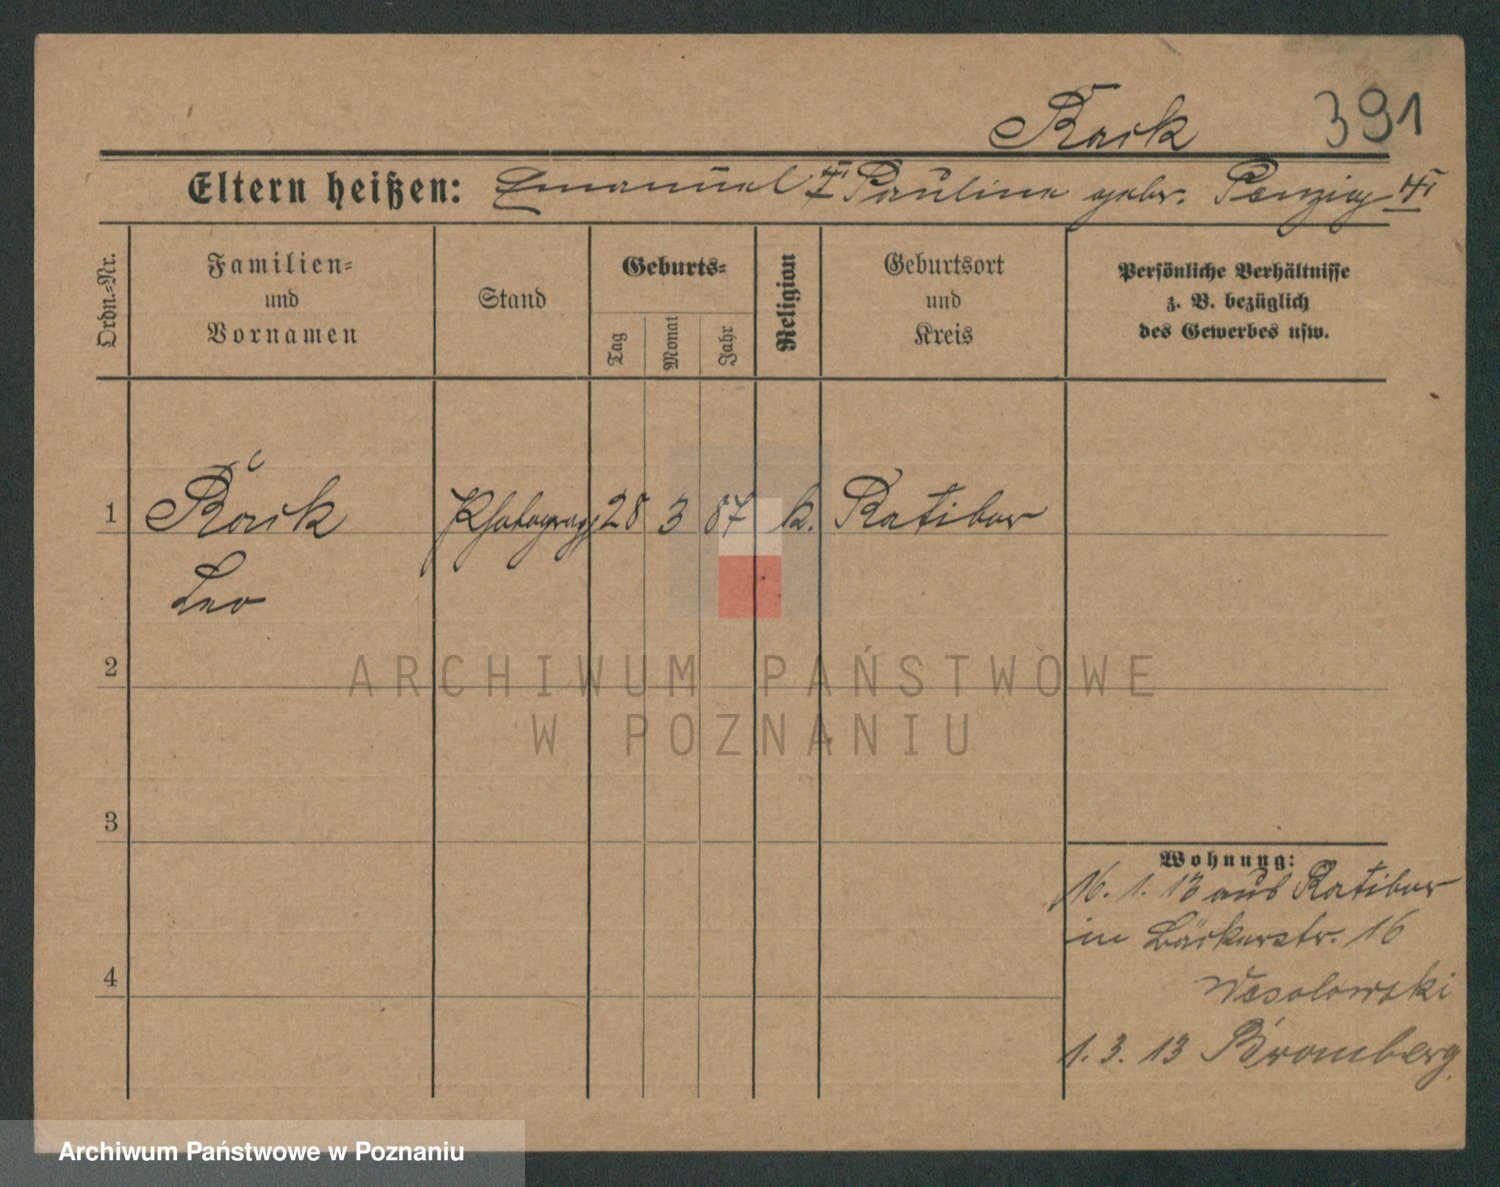 391
Eltern heißen: Emanuel & Paulina gebr.
Ordn.-Nr.
Familien-
und
Vornamen
Stand
Geburts-
Tag
Monat
Jahr
Religion
Geburtsort
und
Kreis
Persönliche Verhältnisse
z. B. bezüglich
des Gewerbes usw.
1 28 3 87 k. Ratibor
Leo
2
3
4
Wohnung:
16. 1. 13 aus Ratibor
in Bäckerstr. 16
Wesolowski
1. 3. 13 Bromberg
ARCHIWUM PAŃSTWOWE
W POZNANIU
Archiwum Państwowe w Poznaniu